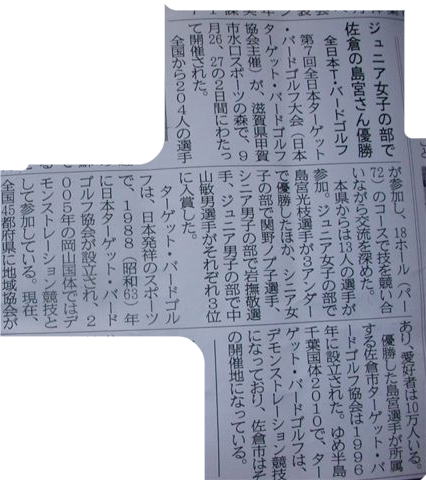 ジュニア女子の部で
佐倉の島宮さん優勝
全日本T・バードゴルフ
第7回全日本ターゲット
・バードゴルフ大会（日本
ターゲット・バードゴルフ
協会主催）が、滋賀県甲賀
市水口スポーツの森で、9
月26、27の2日間にわたっ
て開催された。
全国から204人の選手
が参加し、18ホール（パー
72）のコースで技を競い合
いながら交流を深めた。
本県からは13人の選手が
参加。ジュニア女子の部で
島宮光枝選手が3アンダー
で優勝したほか、シニア女
子の部で関野ノブ子選手、
シニア男子の部で岩撫敬選
手、ジュニア男子の部で中
山敏男選手がそれぞれ3位
に入賞した。
ターゲット・バードゴル
フは、日本発祥のスポーツ
で、1988（昭和63）年
に日本ターゲット・バード
ゴルフ協会が設立され、2
005年の岡山国体ではデ
モンストレーション競技と
して参加している。現在、
全国45都府県に地域協会が
あり、愛好者は10万人いる。
優勝した島宮選手が所属
する佐倉市ターゲット・バ
ードゴルフ協会は1996
年に設立された。ゆめ半島
千葉国体2010で、ター
ゲット・バードゴルフは、
デモンストレーション競技
になっており、佐倉市はそ
の開催地になっている。